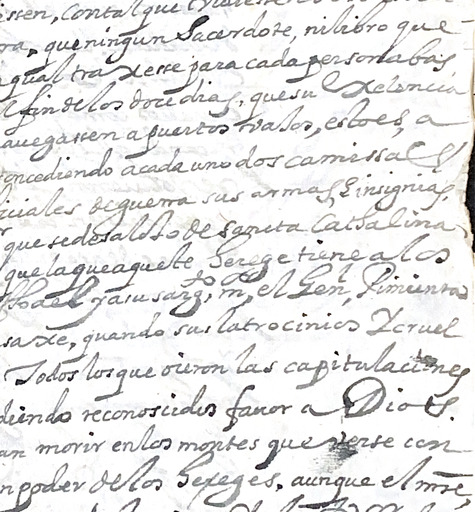 essen, Con tal que
ora, que ningun Sacerdote, ni libro que
qual traxesse para cada persona bas
l fin de los doce dias, que su Xelencia
auegassen a puertos valos, esto es, a
concediendo a cada uno dos camissas
iciales de guerra sus armas, e insignias,
que se desaloto de Sancta Cathalina
que la que aquete herege tiene a los
y a su sarg.to m.or, el Gen.l Pimienta
saxe, quando sus latrocinios Y cruel
Todos los que oieron las capitulaciones
diendo reconoscidos fauor a Dios.
an morir en los montes que verse con
n poder de los hereges, aunque el mre,